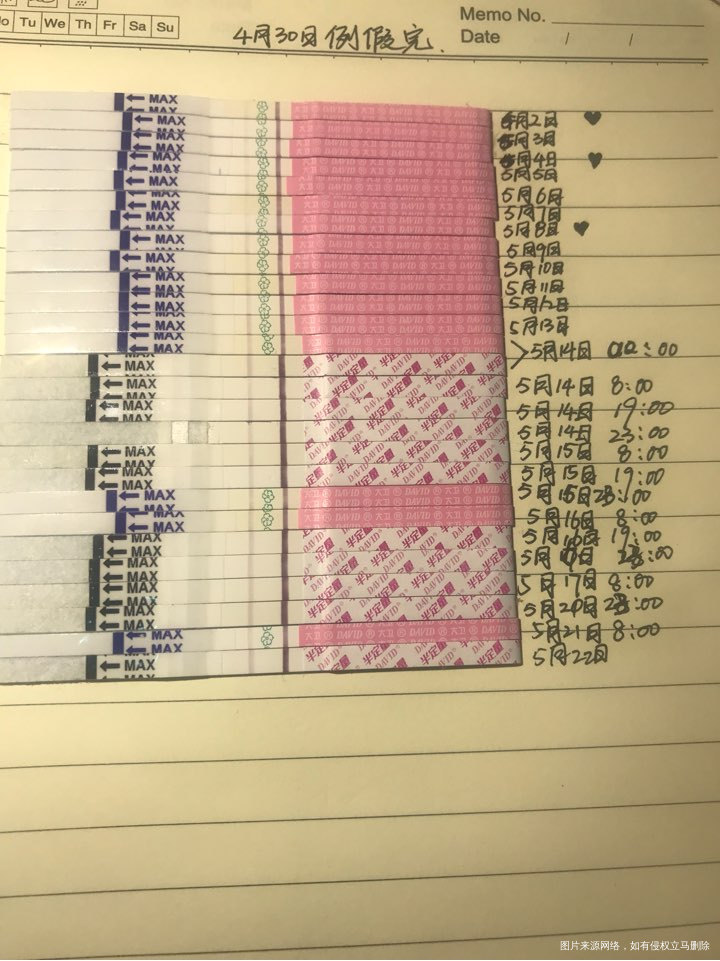 Memo No.
Tu We Th Fr Sa Su
Date / /
4月30日例假完.
MAX
MAX 月2日 ♥
MAX 5月3日
MAX 5月4日 ♥
MAX 5月5日
MAX 5月6日
MAX 5月7日
MAX 5月8日 ♥
MAX 5月9日
MAX 5月10日
MAX 5月11日
MAX 5月12日
MAX 5月13日
MAX 大卫 DAVID
MAX 5月14日 00:00
MAX 半定量 DAVID 5月14日 8:00
MAX 5月14日 19:00
5月14日 23:00
MAX 5月15日 8:00
MAX 5月15日 19:00
MAX 大卫 DAVID 5月15日 23:00
MAX 5月16日 8:00
MAX 半定量 DAVID 5月16日 19:00
MAX 5月 日 23:00
MAX 5月17日 8:00
MAX 5月20日 23:00
MAX 大卫 DAVID 5月21日 8:00
MAX 半定量 DAVID 5月22日
图片来源网络，如有侵权立马删除